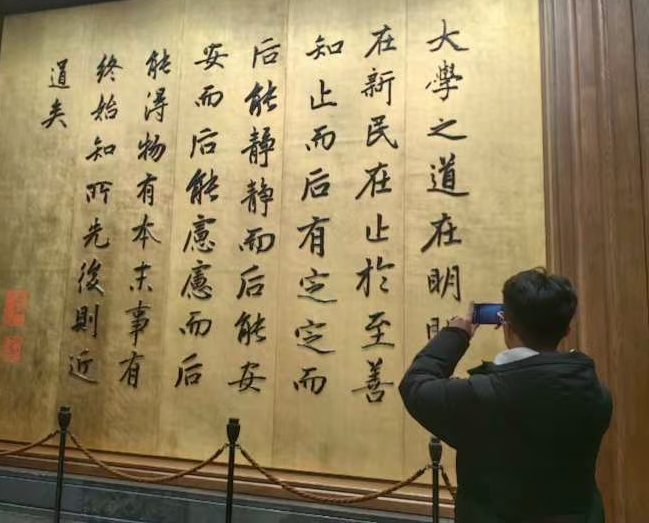 大學之道在明明
在新民在止於至善
知止而后有定定而
后能靜靜而后能安
安而后能慮慮而后
能得物有本末事有
終始知所先後則近
道矣